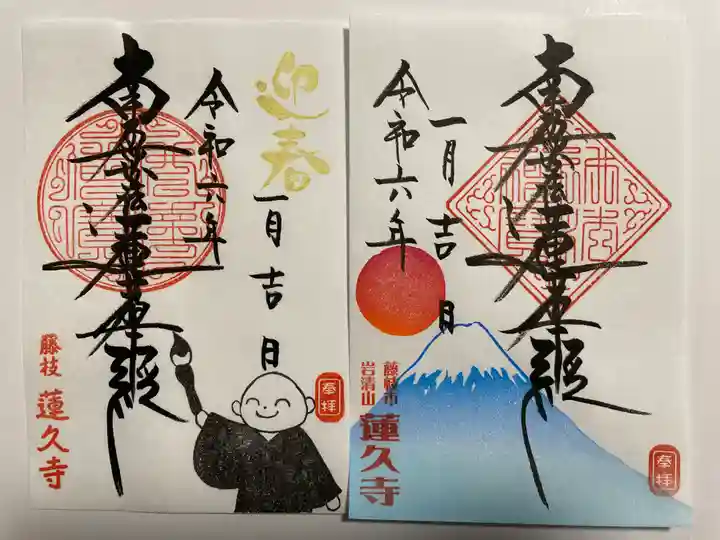 迎春
南無妙法蓮華経
令和六年
一月吉日
藤枝 蓮久寺
奉拝
南無妙法蓮華経
令和六年
一月吉日
藤枝市
岩清山
蓮久寺
奉拝